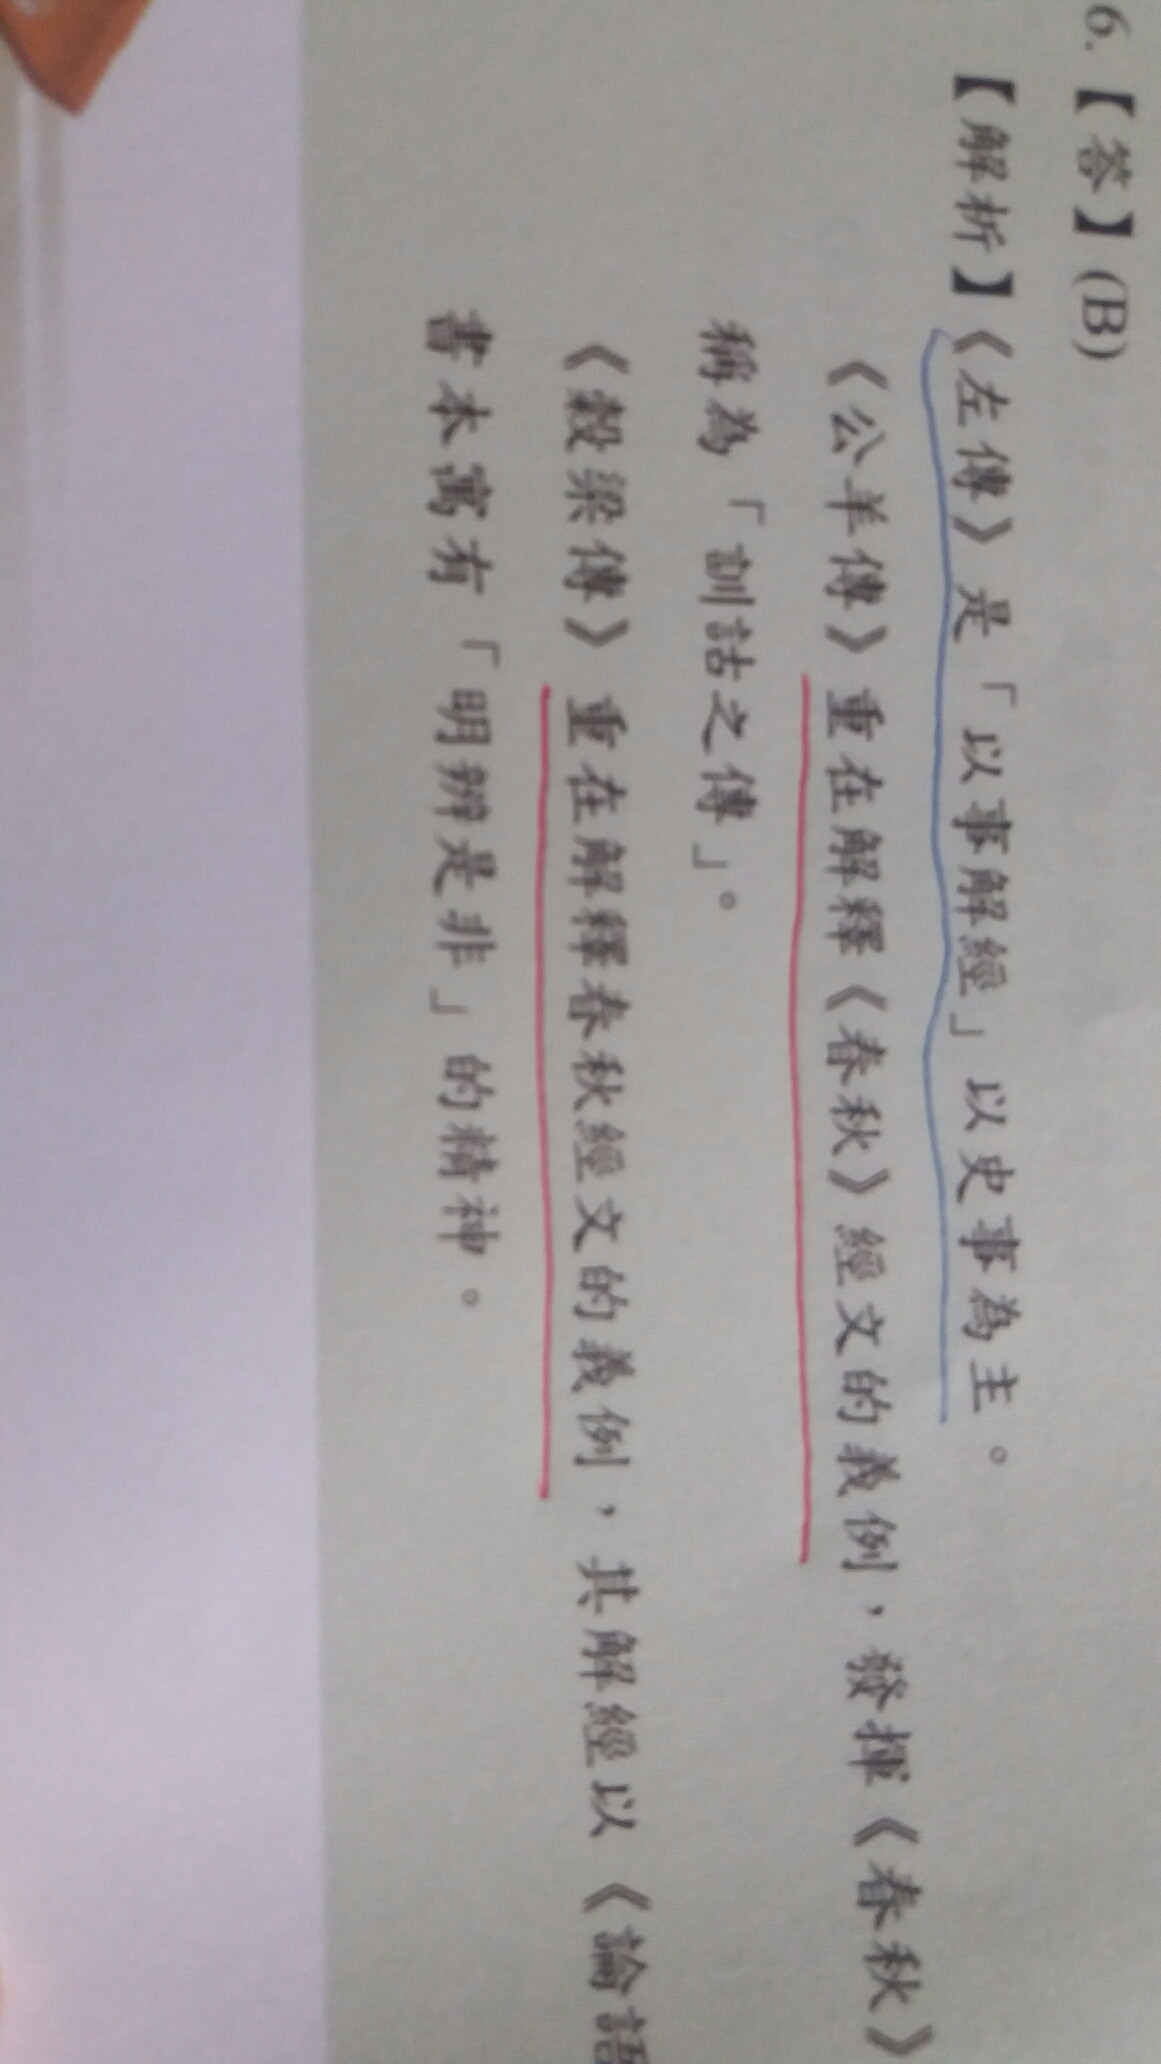 6.【答】(B)
【解析】《左傳》是「以事解經」以史事為主。
《公羊傳》重在解釋《春秋》經文的義例，發揮《春秋》
稱為「訓詁之傳」。
《穀梁傳》重在解釋春秋經文的義例，其解經以《論語
書本寓有「明辨是非」的精神。